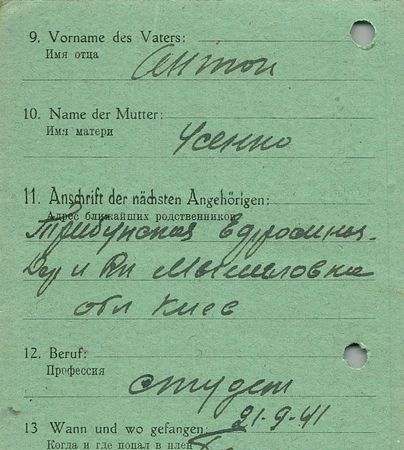 9. Vorname des Vaters:
Имя отца
Антон
10. Name der Mutter:
Имя матери
Усенко
11. Anschrift der nächsten Angehörigen:
Адрес ближайших родственников
Трибунская
и Мышеловка
обл Киев
12. Beruf:
Профессия
студент
21-9-41
13 Wann und wo gefangen:
Когда и где попал в плен